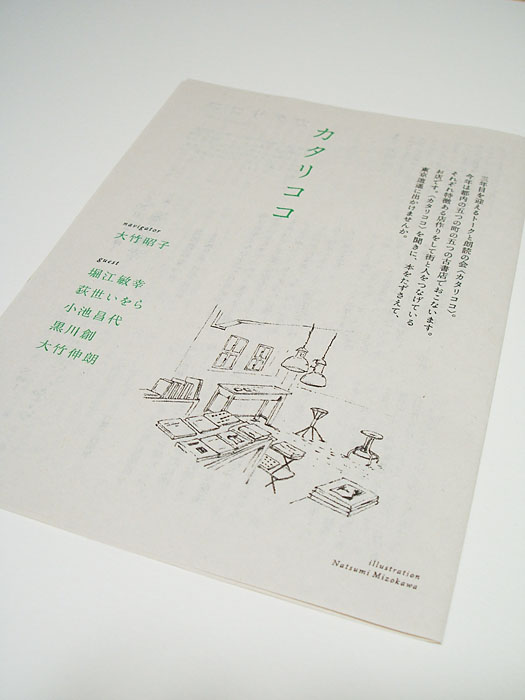 カタリココ
三年目を迎えるトークと朗読の会〈カタリココ〉。
今年は都内の五つの町の五つの古書店でおこないます。
それぞれ特徴ある店作りをして街と人をつなげている
お店です。〈カタリココ〉を聞きに、本をたずさえて、
東京漫遊に出かけませんか。
navigator
大竹昭子
guest
堀江敏幸
荻世いをら
小池昌代
黒川創
大竹伸朗
illustration
Natsumi Mizokawa